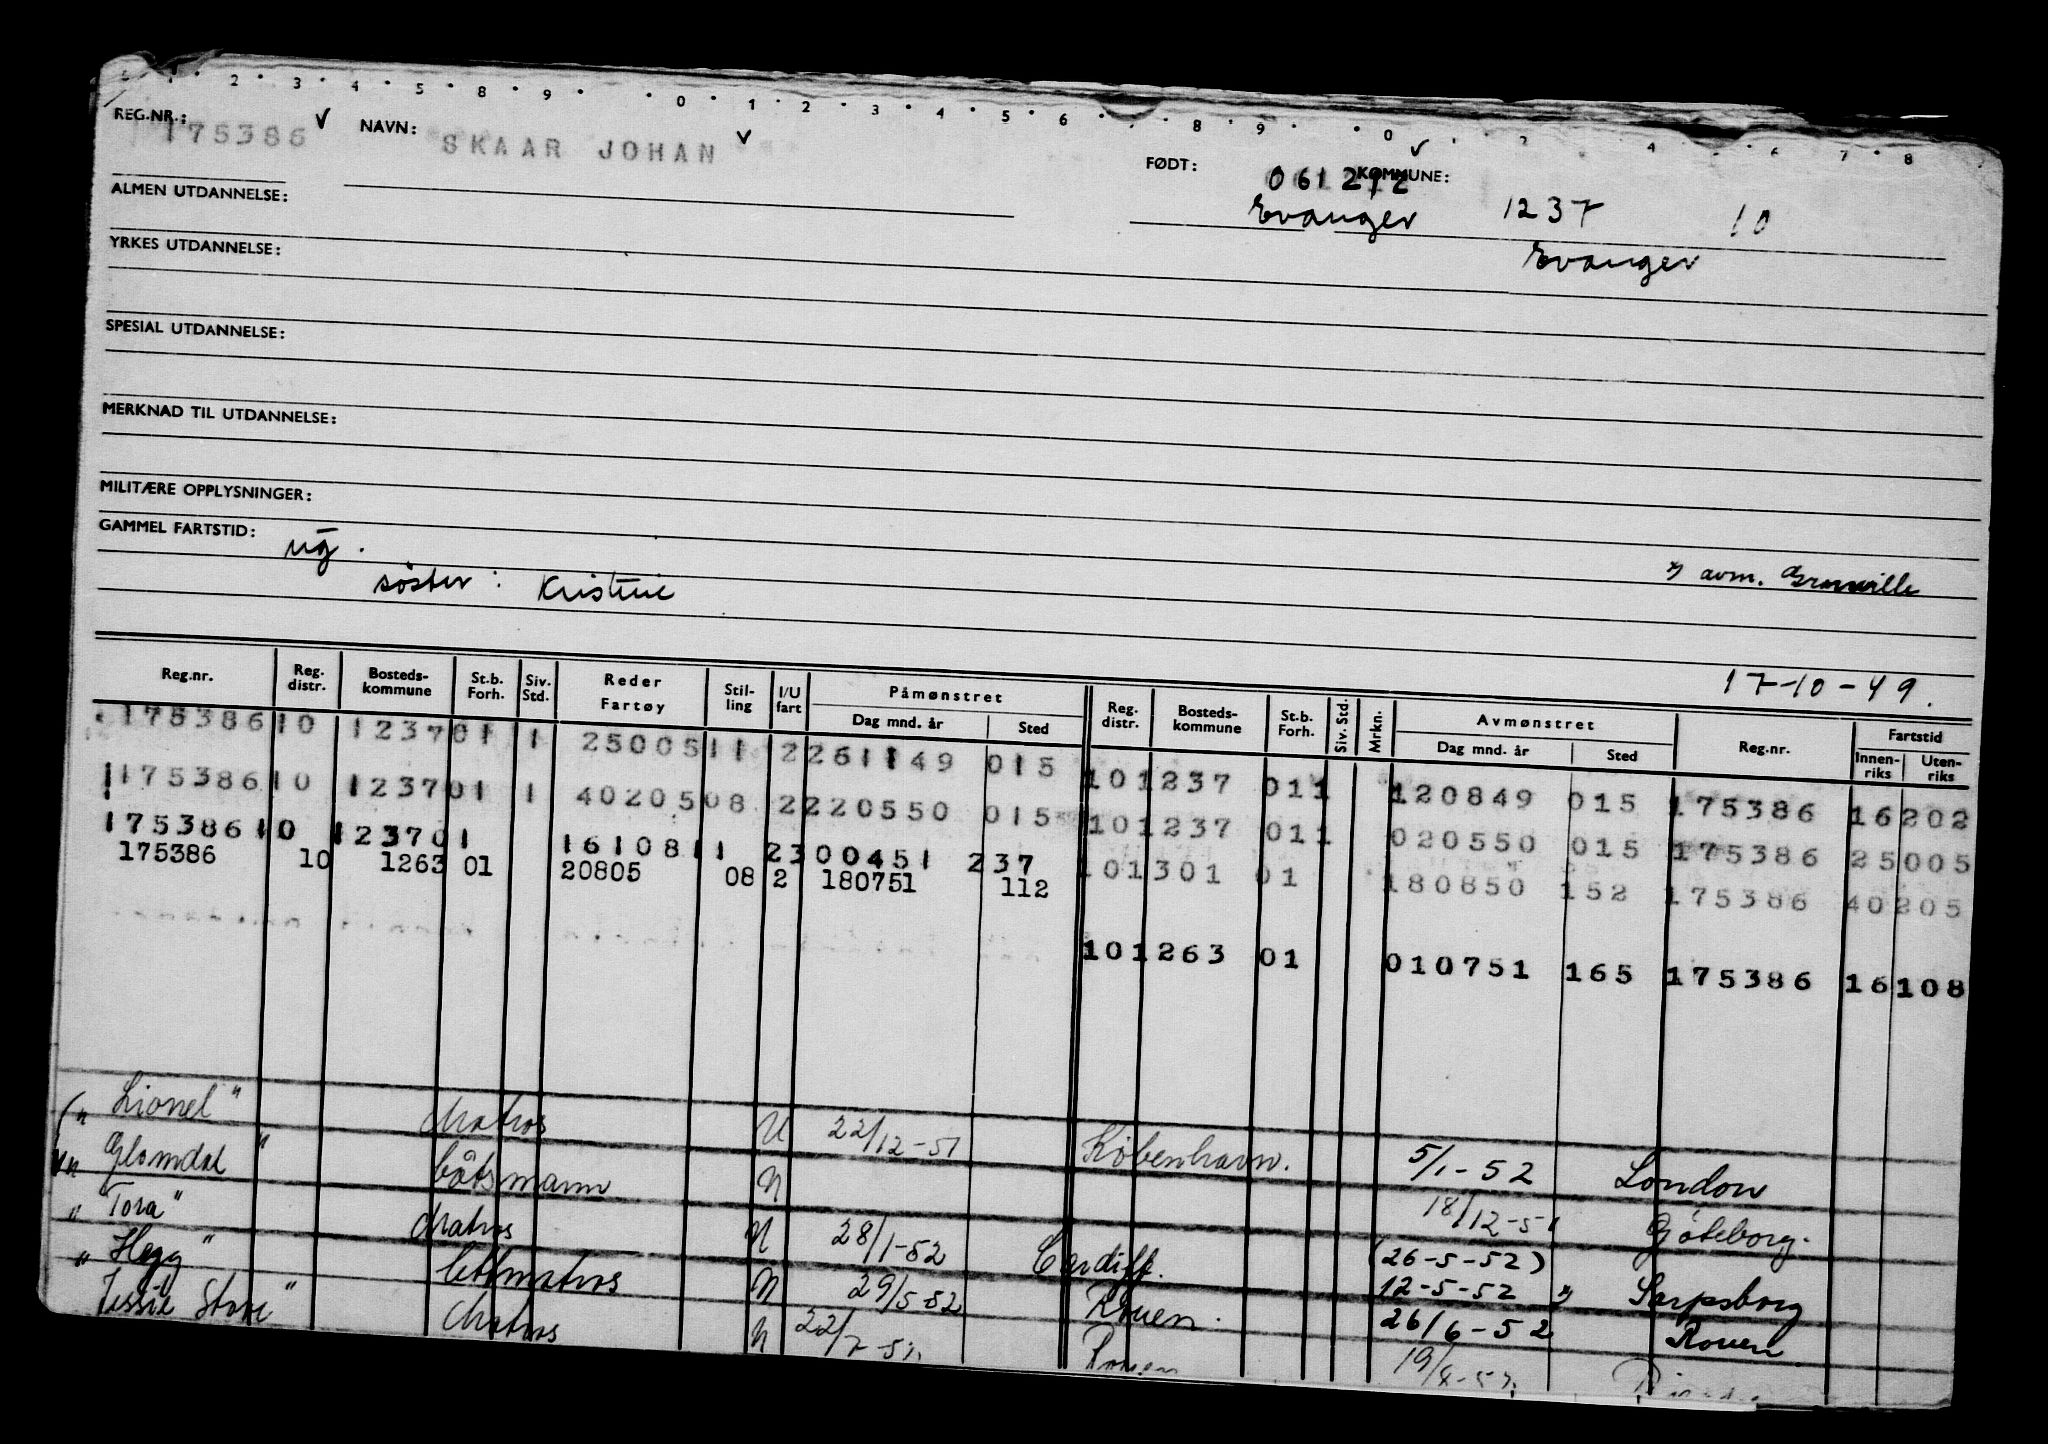 1 · 2 · 3 · 4 · 5 · 8 · 9 · · 0 · 1 · 2 · 3 · 4 · 5 · 6 · · 8 · 9 · · 0 · · 2 4 · · 6 · 7 · 8
REG.NR.: 175386 NAVN: SKAAR JOHAN FØDT: 061212 KOMMUNE:
Evanger 1237 10
ALMEN UTDANNELSE: Evanger
YRKES UTDANNELSE:
SPESIAL UTDANNELSE:
MERKNAD TIL UTDANNELSE:
MILITÆRE OPPLYSNINGER:
GAMMEL FARTSTID: ug.
søster: Kristine avm. Granville
17-10-49.
Reg.nr. Reg. distr. Bosteds-kommune St.b. Forh. Siv. Std. Reder Fartøy Stil-ling I/U fart Påmønstret Dag mnd. år Sted Reg. distr. Bosteds-kommune St.b. Forh. Siv. Std. Mrkn. Avmønstret Dag mnd. år Sted Reg.nr. Fartstid Innen-riks Uten-riks
175386 10 1237 01 1 25005 11 2 261149 015 10 1237 01 1 120849 015 175386 16202
175386 10 1237 01 1 40205 08 2 220550 015 10 1237 01 1 020550 015 175386 25005
175386 10 1237 01 16108 11 2 300451 237 10 1301 01 180850 152 175386 40205
175386 10 1263 01 20805 08 2 180751 112
10 1263 01 010751 165 175386 16108
„Lionel" Matros U 22/12-51 København. 5/1-52 London
„Glomdal" båtsmann U 18/12-51 Göteborg.
„Tora" Matros U 28/1-52 Cardiff. (26-5-52)
12-5-52 Sarpsborg
„Hegg" lettmatros U 29/5-52 Rouen. 26/6-52 Rouen
Jessie Stove" Matros U 22/7-52 Rouen 19/8-52